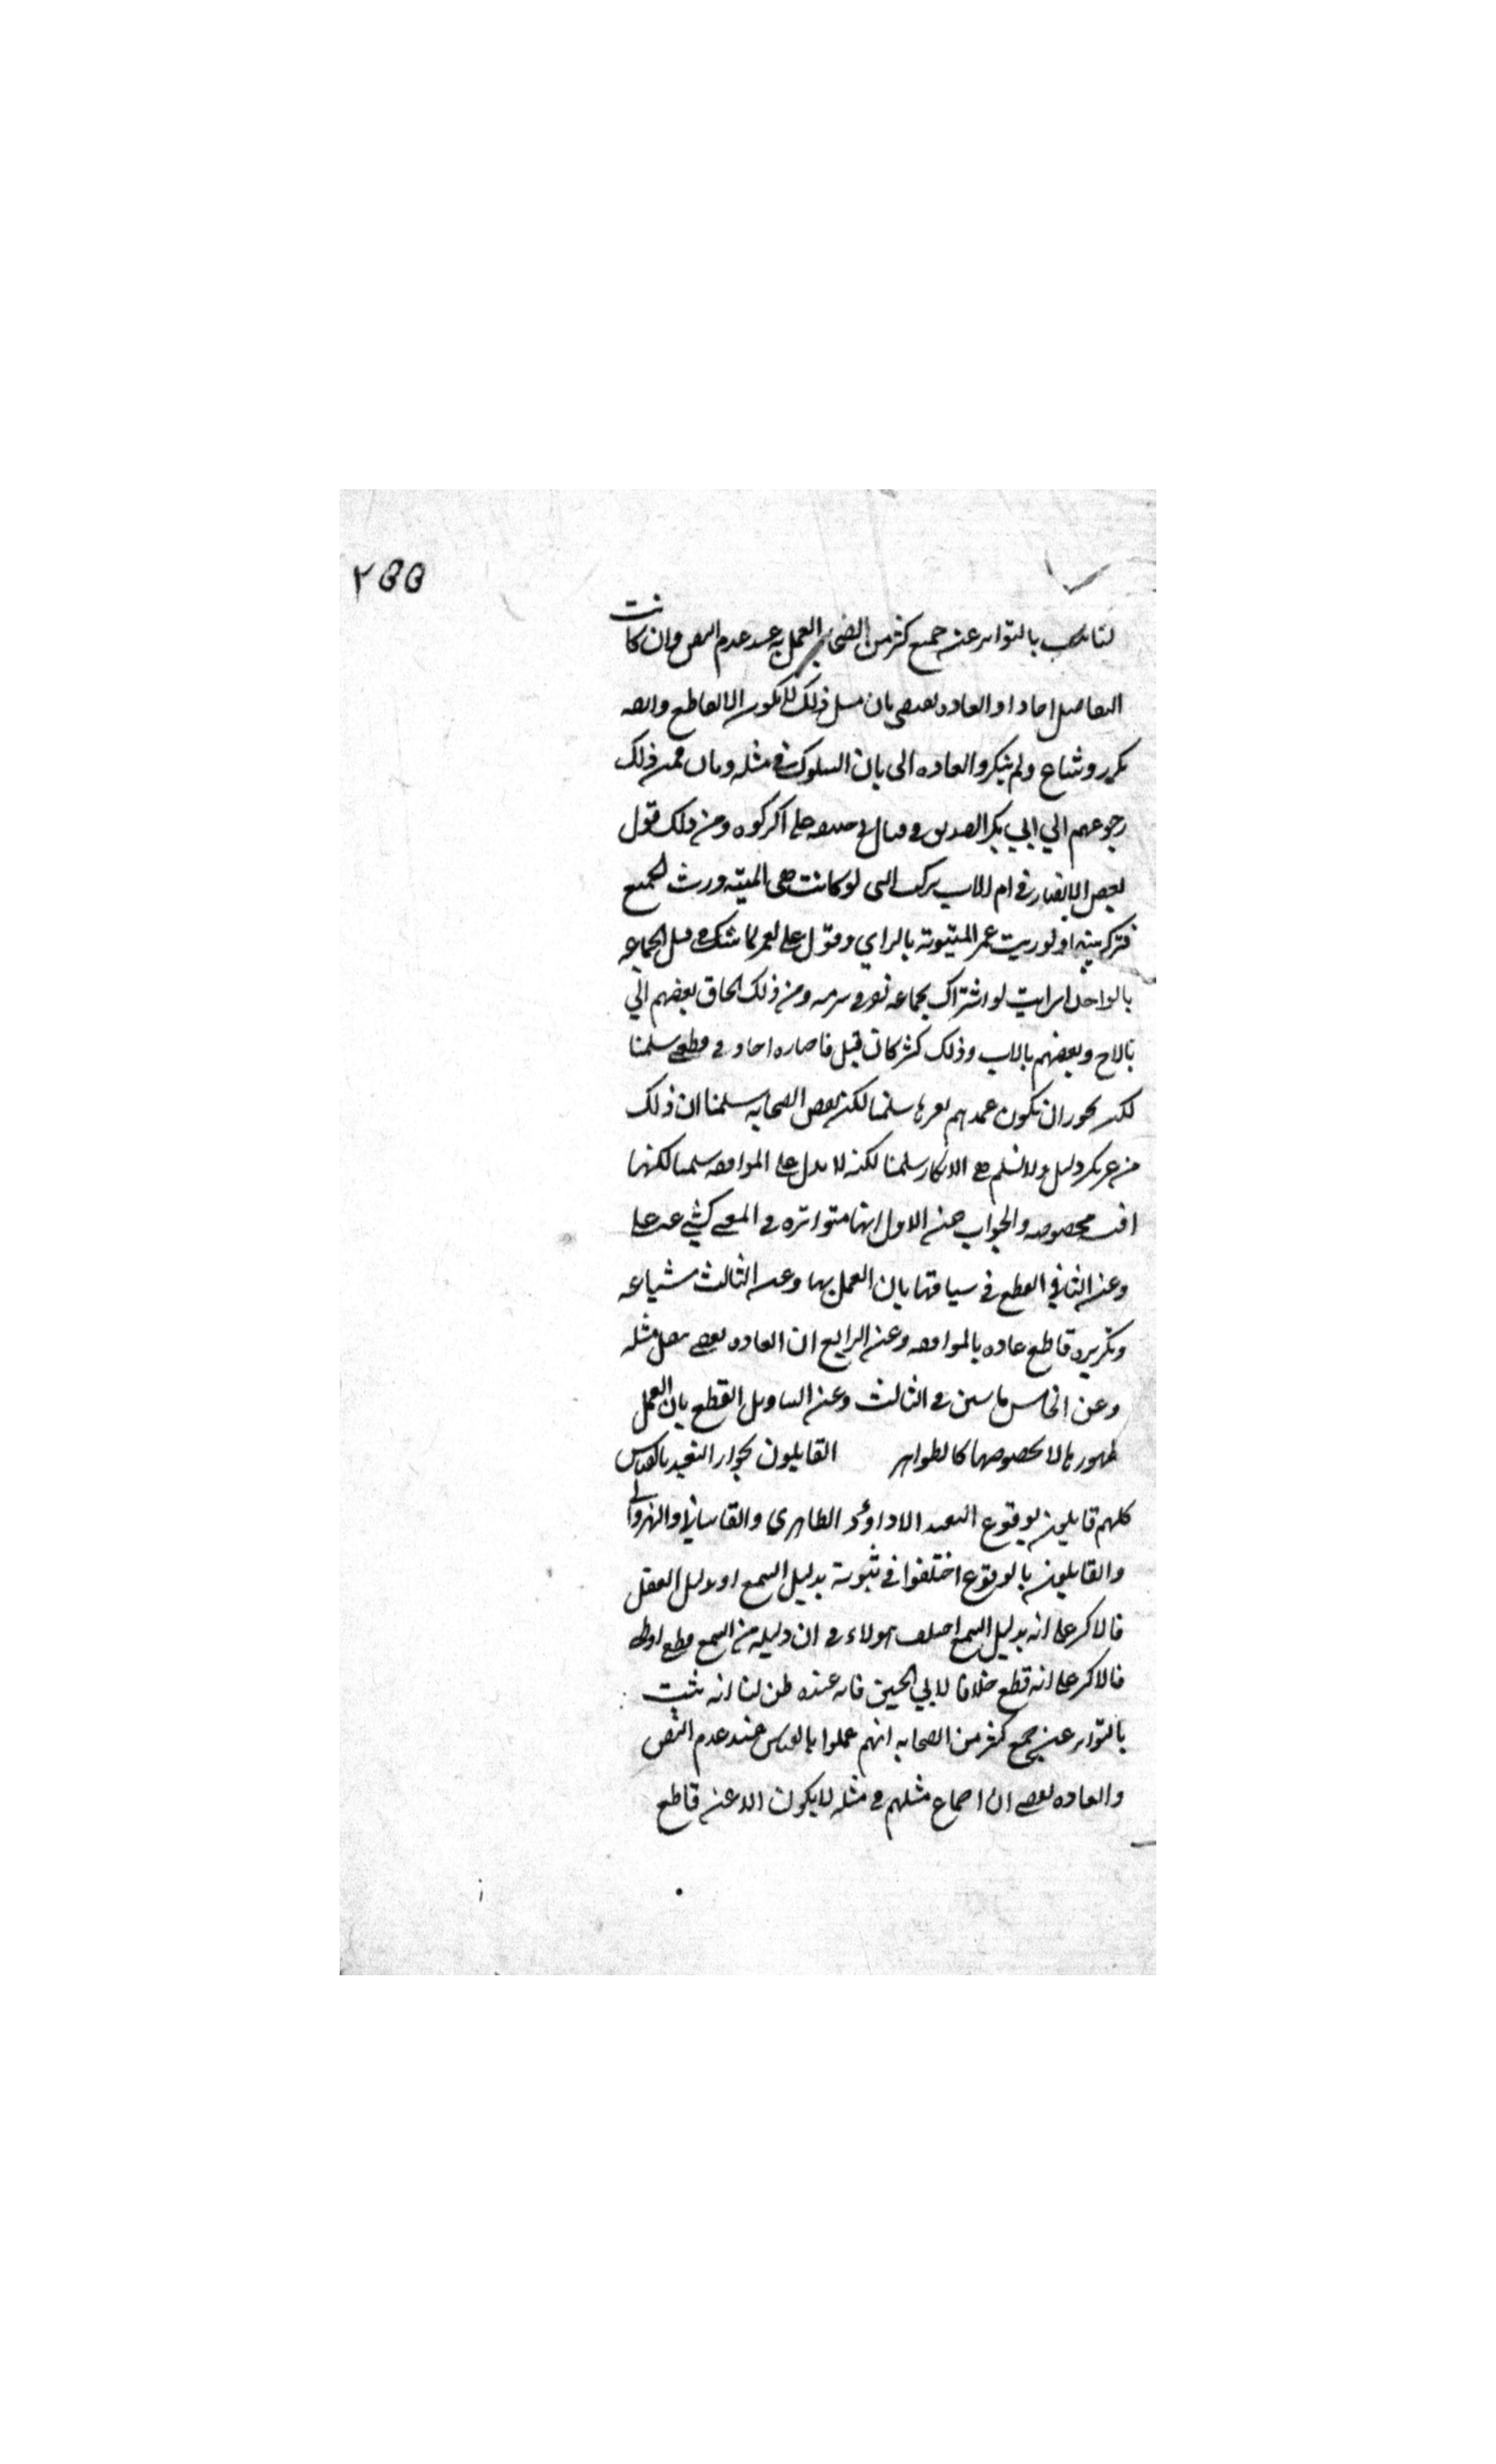 ٢٥٥
لنا ثبت بالتواتر عن جمع كثير من الصحابة العمل به عند عدم النص وان كانت
التفاصيل احادا والعادة تقضي بان مثل ذلك لا يكون الا لقاطع وانه
تكرر وشاع ولم ينكر والعادة بان السكوت في مثله وفاق فمن ذلك
رجوعهم الي ابي بكر الصديق في قتال بني حنيفة على الزكوة ومن ذلك قول
بعض الانصار في ام الاب تركت التي لو كانت هي الميتة ورث الجميع
وتوريث عمر المبتوتة بالراي وقول علي لعمر لما شك في قتل الجماعة
بالواحد ارايت لو اشترك جماعة في سرقة ومن ذلك الحاق بعضهم
بالاخ وبعضهم بالاب وذلك كثير فان قيل اخبار احاد في قطعي سلمنا
لكن يجوز ان يكون عملهم بغيرها سلمنا لكنه بعض الصحابة سلمنا ان ذلك
من غير نكير دليل ولا نسلم نفي الانكار سلمنا لكنه لا يدل على الموافقة سلمنا لكنها
اقيسة مخصوصة والجواب عن الاول انها متواترة في المعنى كشجاعة علي
وعن الثاني القطع في سياقها بان العمل بها وعن الثالث شياعه
وتكريره قاطع عادة بالموافقة وعن الرابع ان العادة تقضي بنقل مثله
وعن الخامس ما سبق في الثالث وعن السادس القطع بان العمل
لظهورها لا لخصوصها كالظواهر القايلون بجواز التعبد بالقياس
كلهم قايلون بوقوع التعبد الا داود الظاهري والقاساني والنهرواني
والقايلون بالوقوع اختلفوا في ثبوته بدليل السمع او بدليل العقل
فالاكثر على انه بدليل السمع اختلف هولاء في ان دليله من السمع قطعي او ظني
فالاكثر على انه قطعي خلافا لابي الحسين فانه عنده ظني لنا انه ثبت
بالتواتر عن جمع كثير من الصحابة انهم عملوا بالقياس عند عدم النص
والعادة تقضي ان اجماع مثلهم في مثله لا يكون الا عن قاطع